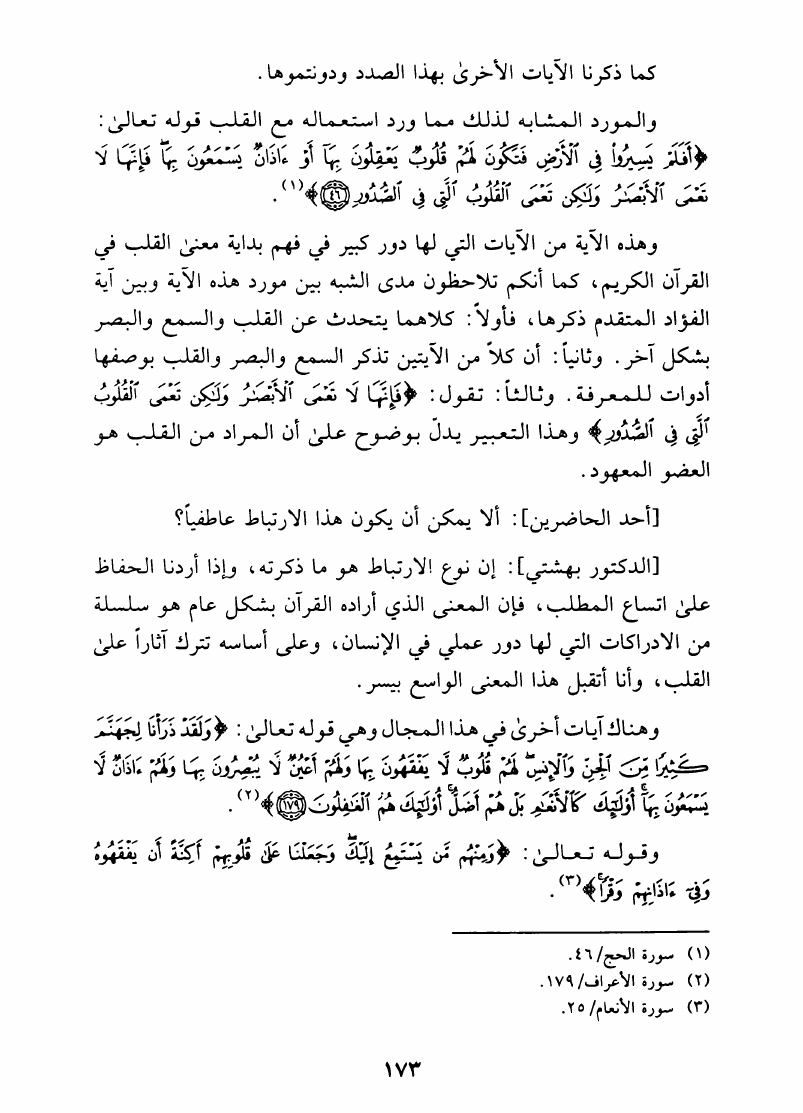 كما ذكرنا الآيات الأخرىٰ بهذا الصدد ودونتموها.
والمورد المشابه لذلك مما ورد استعماله مع القلب قوله تعالىٰ:
﴿أَفَلَمْ يَسِيرُوا۟ فِى ٱلْأَرْضِ فَتَكُونَ لَهُمْ قُلُوبٌ يَعْقِلُونَ بِهَآ أَوْ ءَاذَانٌ يَسْمَعُونَ بِهَا ۖ فَإِنَّهَا لَا
تَعْمَى ٱلْأَبْصَٰرُ وَلَٰكِن تَعْمَى ٱلْقُلُوبُ ٱلَّتِى فِى ٱلصُّدُورِ ﴿٤٦﴾﴾(١).
وهذه الآية من الآيات التي لها دور كبير في فهم بداية معنىٰ القلب في
القرآن الكريم، كما أنكم تلاحظون مدى الشبه بين مورد هذه الآية وبين آية
الفؤاد المتقدم ذكرها، فأولاً: كلاهما يتحدث عن القلب والسمع والبصر
بشكل آخر. وثانياً: أن كلاً من الآيتين تذكر السمع والبصر والقلب بوصفها
أدوات للمعرفة. وثالثاً: تقول: ﴿فَإِنَّهَا لَا تَعْمَى ٱلْأَبْصَٰرُ وَلَٰكِن تَعْمَى ٱلْقُلُوبُ
ٱلَّتِى فِى ٱلصُّدُورِ﴾ وهذا التعبير يدلّ بوضوح علىٰ أن المراد من القلب هو
العضو المعهود.
[أحد الحاضرين]: ألا يمكن أن يكون هذا الارتباط عاطفياً؟
[الدكتور بهشتي]: إن نوع الارتباط هو ما ذكرته، وإذا أردنا الحفاظ
علىٰ اتساع المطلب، فإن المعنى الذي أراده القرآن بشكل عام هو سلسلة
من الادراكات التي لها دور عملي في الإنسان، وعلى أساسه تترك آثاراً علىٰ
القلب، وأنا أتقبل هذا المعنى الواسع بيسر.
وهناك آيات أخرىٰ في هذا المجال وهي قوله تعالىٰ: ﴿وَلَقَدْ ذَرَأْنَا لِجَهَنَّمَ
كَثِيرًا مِّنَ ٱلْجِنِّ وَٱلْإِنسِ ۖ لَهُمْ قُلُوبٌ لَّا يَفْقَهُونَ بِهَا وَلَهُمْ أَعْيُنٌ لَّا يُبْصِرُونَ بِهَا وَلَهُمْ ءَاذَانٌ لَّا
يَسْمَعُونَ بِهَآ ۚ أُو۟لَٰٓئِكَ كَٱلْأَنْعَٰمِ بَلْ هُمْ أَضَلُّ ۚ أُو۟لَٰٓئِكَ هُمُ ٱلْغَٰفِلُونَ ﴿١٧٩﴾﴾(٢).
وقوله تعالىٰ: ﴿وَمِنْهُم مَّن يَسْتَمِعُ إِلَيْكَ ۖ وَجَعَلْنَا عَلَىٰ قُلُوبِهِمْ أَكِنَّةً أَن يَفْقَهُوهُ
وَفِىٓ ءَاذَانِهِمْ وَقْرًا ۚ﴾(٣).
(١) سورة الحج/٤٦.
(٢) سورة الأعراف/١٧٩.
(٣) سورة الأنعام/٢٥.
١٧٣